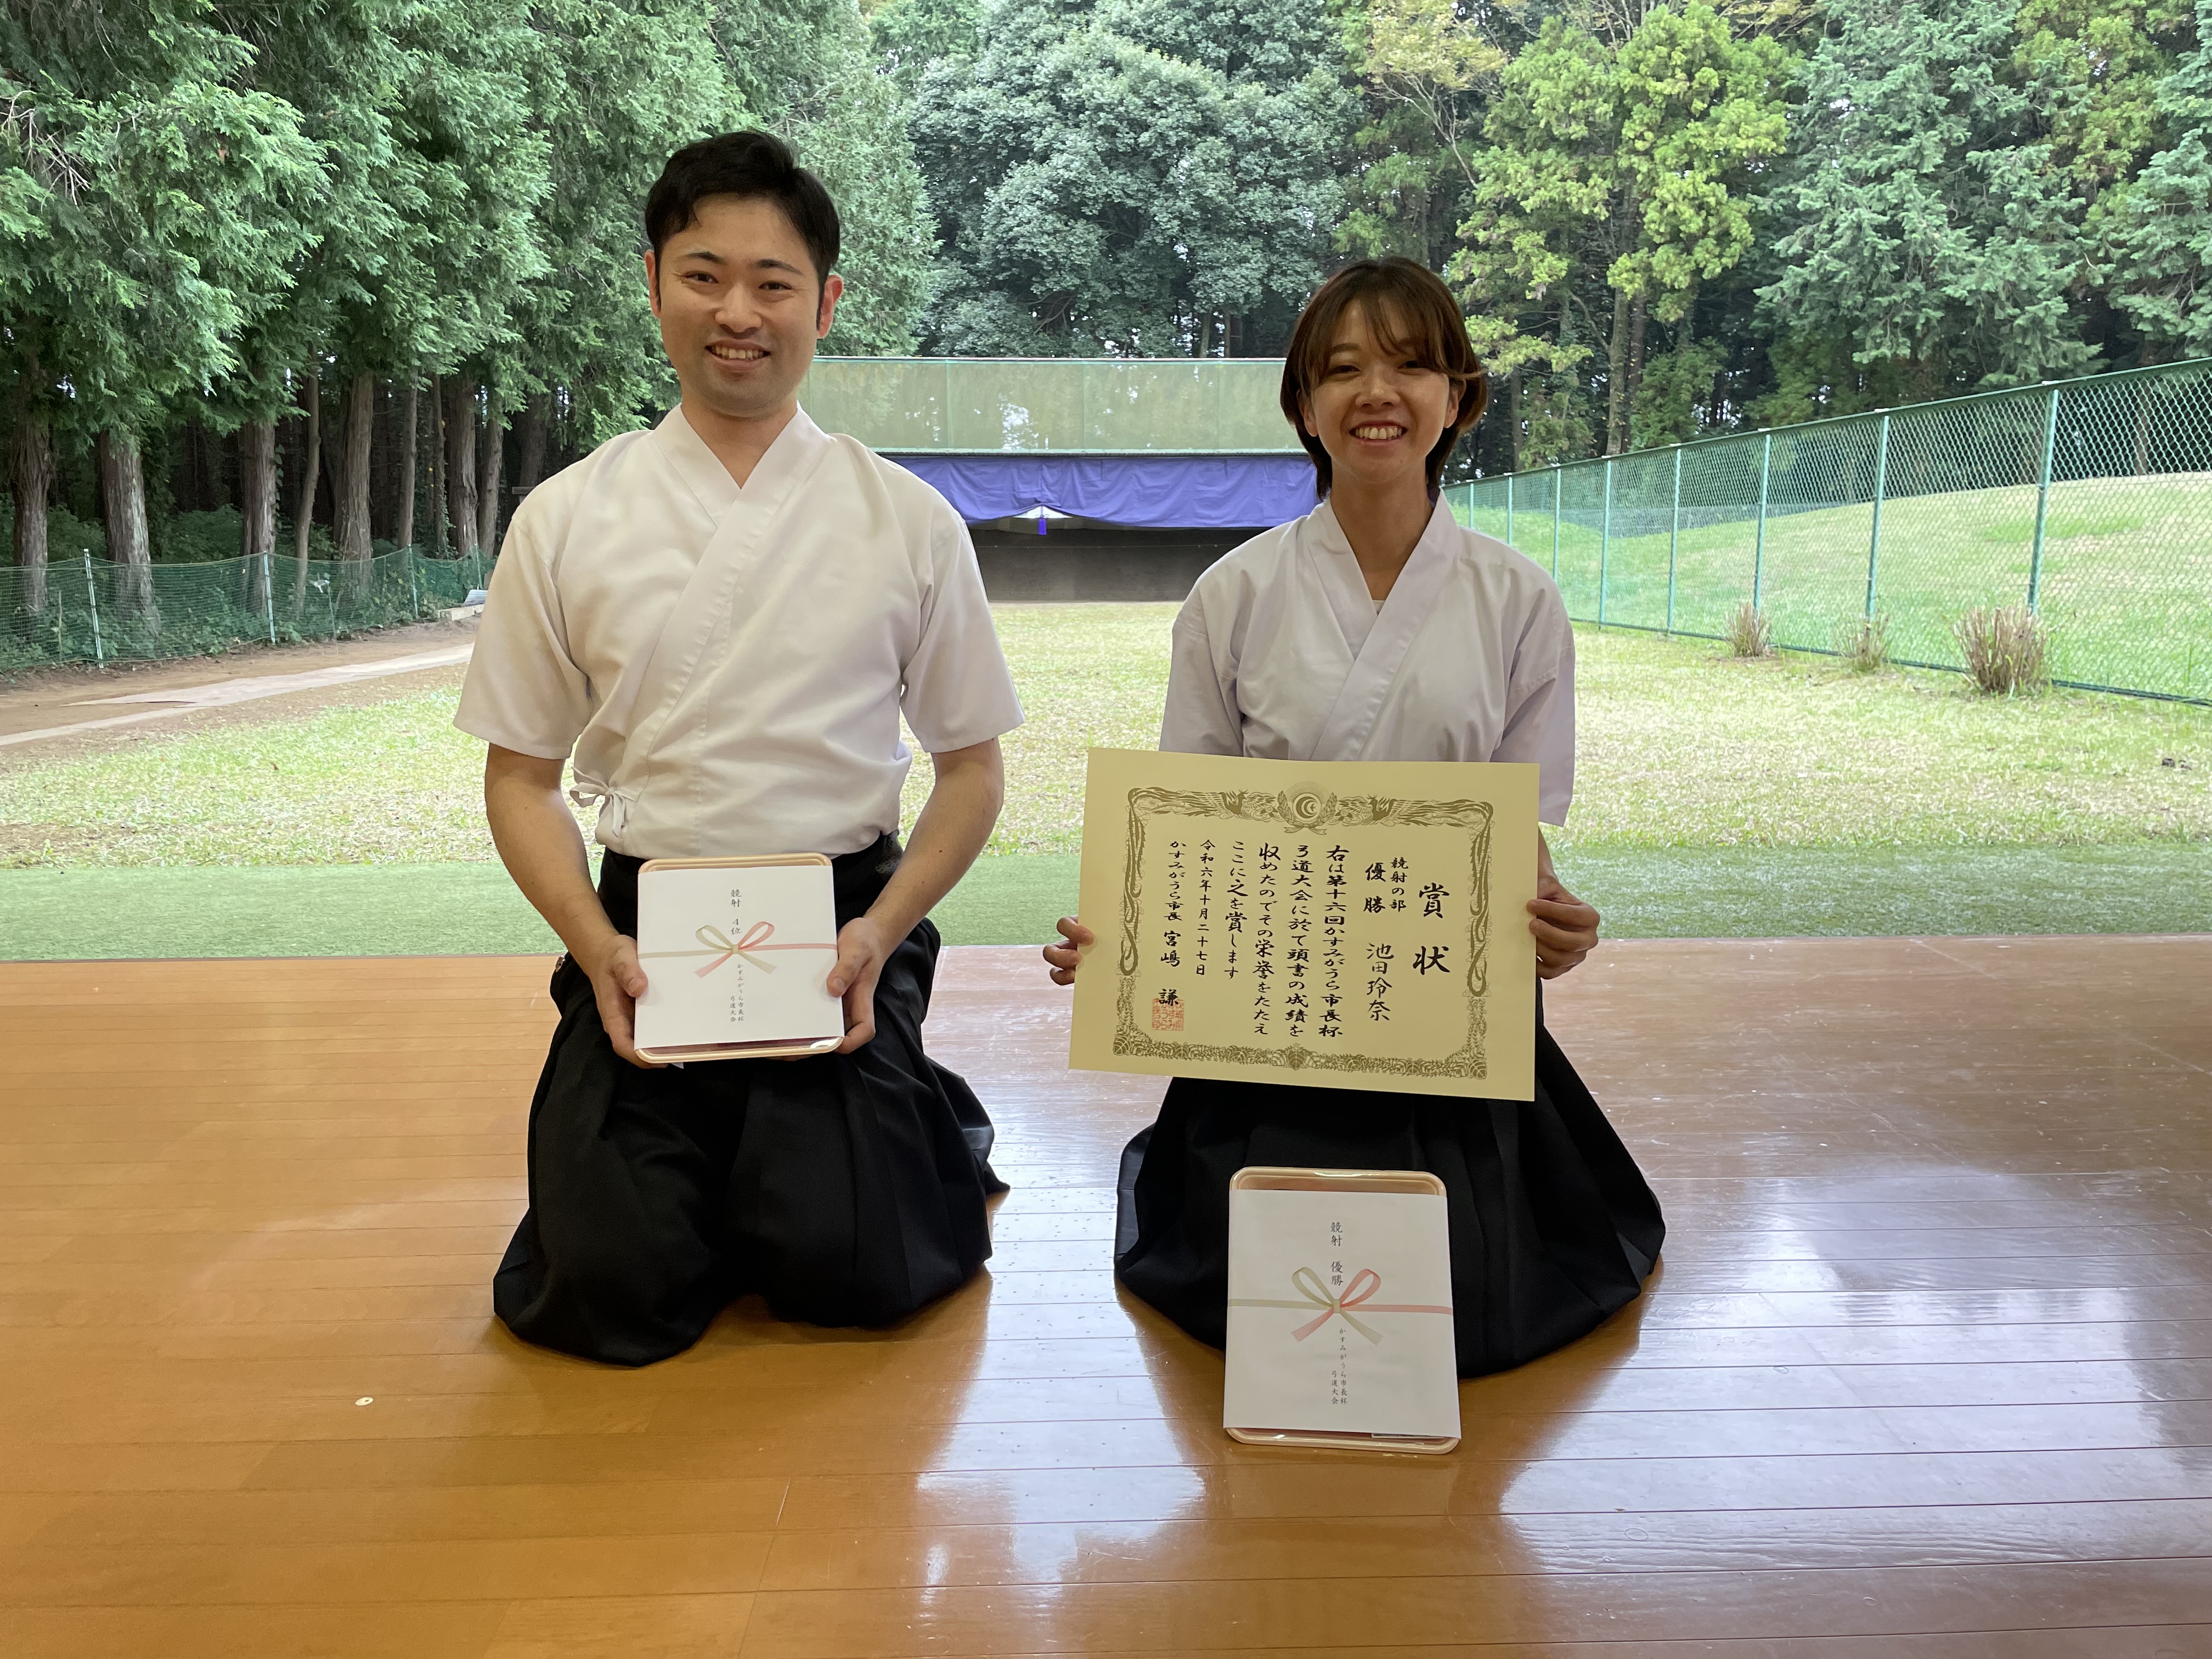 競射 4位
かすみがうら市長杯
弓道大会
賞状
競射の部
優勝 池田玲奈
右は第十六回かすみがうら市長杯
弓道大会に於て頭書の成績を
収めたのでその栄誉をたたえ
ここに之を賞します
令和六年十月二十七日
かすみがうら市長 宮嶋 謙
競射 優勝
かすみがうら市長杯
弓道大会